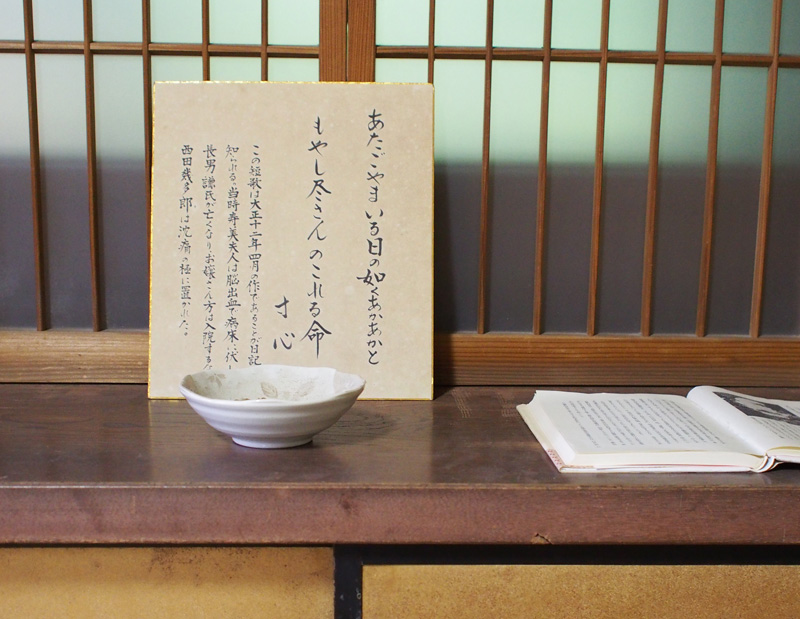 あたごやまいる日の如くあかあかと
もやし尽さんのこれる命
寸心
この短歌は大正十二年四月の作であることが日記
知られる。当時寿美夫人は脳出血で病床に伏し
長男謙氏が亡くなりお嬢さん方は入院する
西田幾多郎は沈痛の極に置かれた。